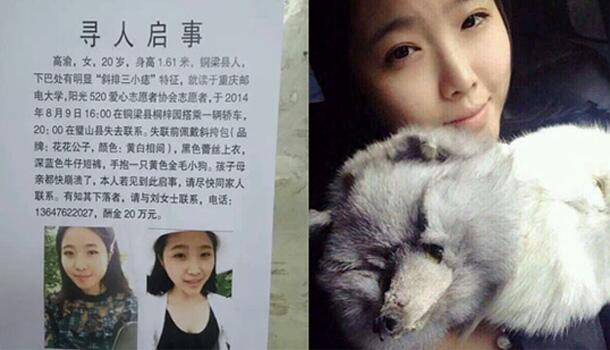 寻人启事
高渝，女，20 岁，身高 1.61 米，铜梁县人，
下巴处有明显“斜排三小痣”特征，就读于重庆邮
电大学，阳光 520 爱心志愿者协会志愿者，于 2014
年 8 月 9 日 16:00 在铜梁县桐梓园搭乘一辆轿车，
20：00 在璧山县失去联系。失联前佩戴斜挎包（品
牌：花花公子，颜色：黄白相间），黑色蕾丝上衣，
深蓝色牛仔短裤，手抱一只黄色金毛小狗。孩子母
亲都快崩溃了，本人若见到此启事，请尽快同家人
联系。有知其下落者，请与刘女士联系，电话：
13647622027，酬金 20 万元。